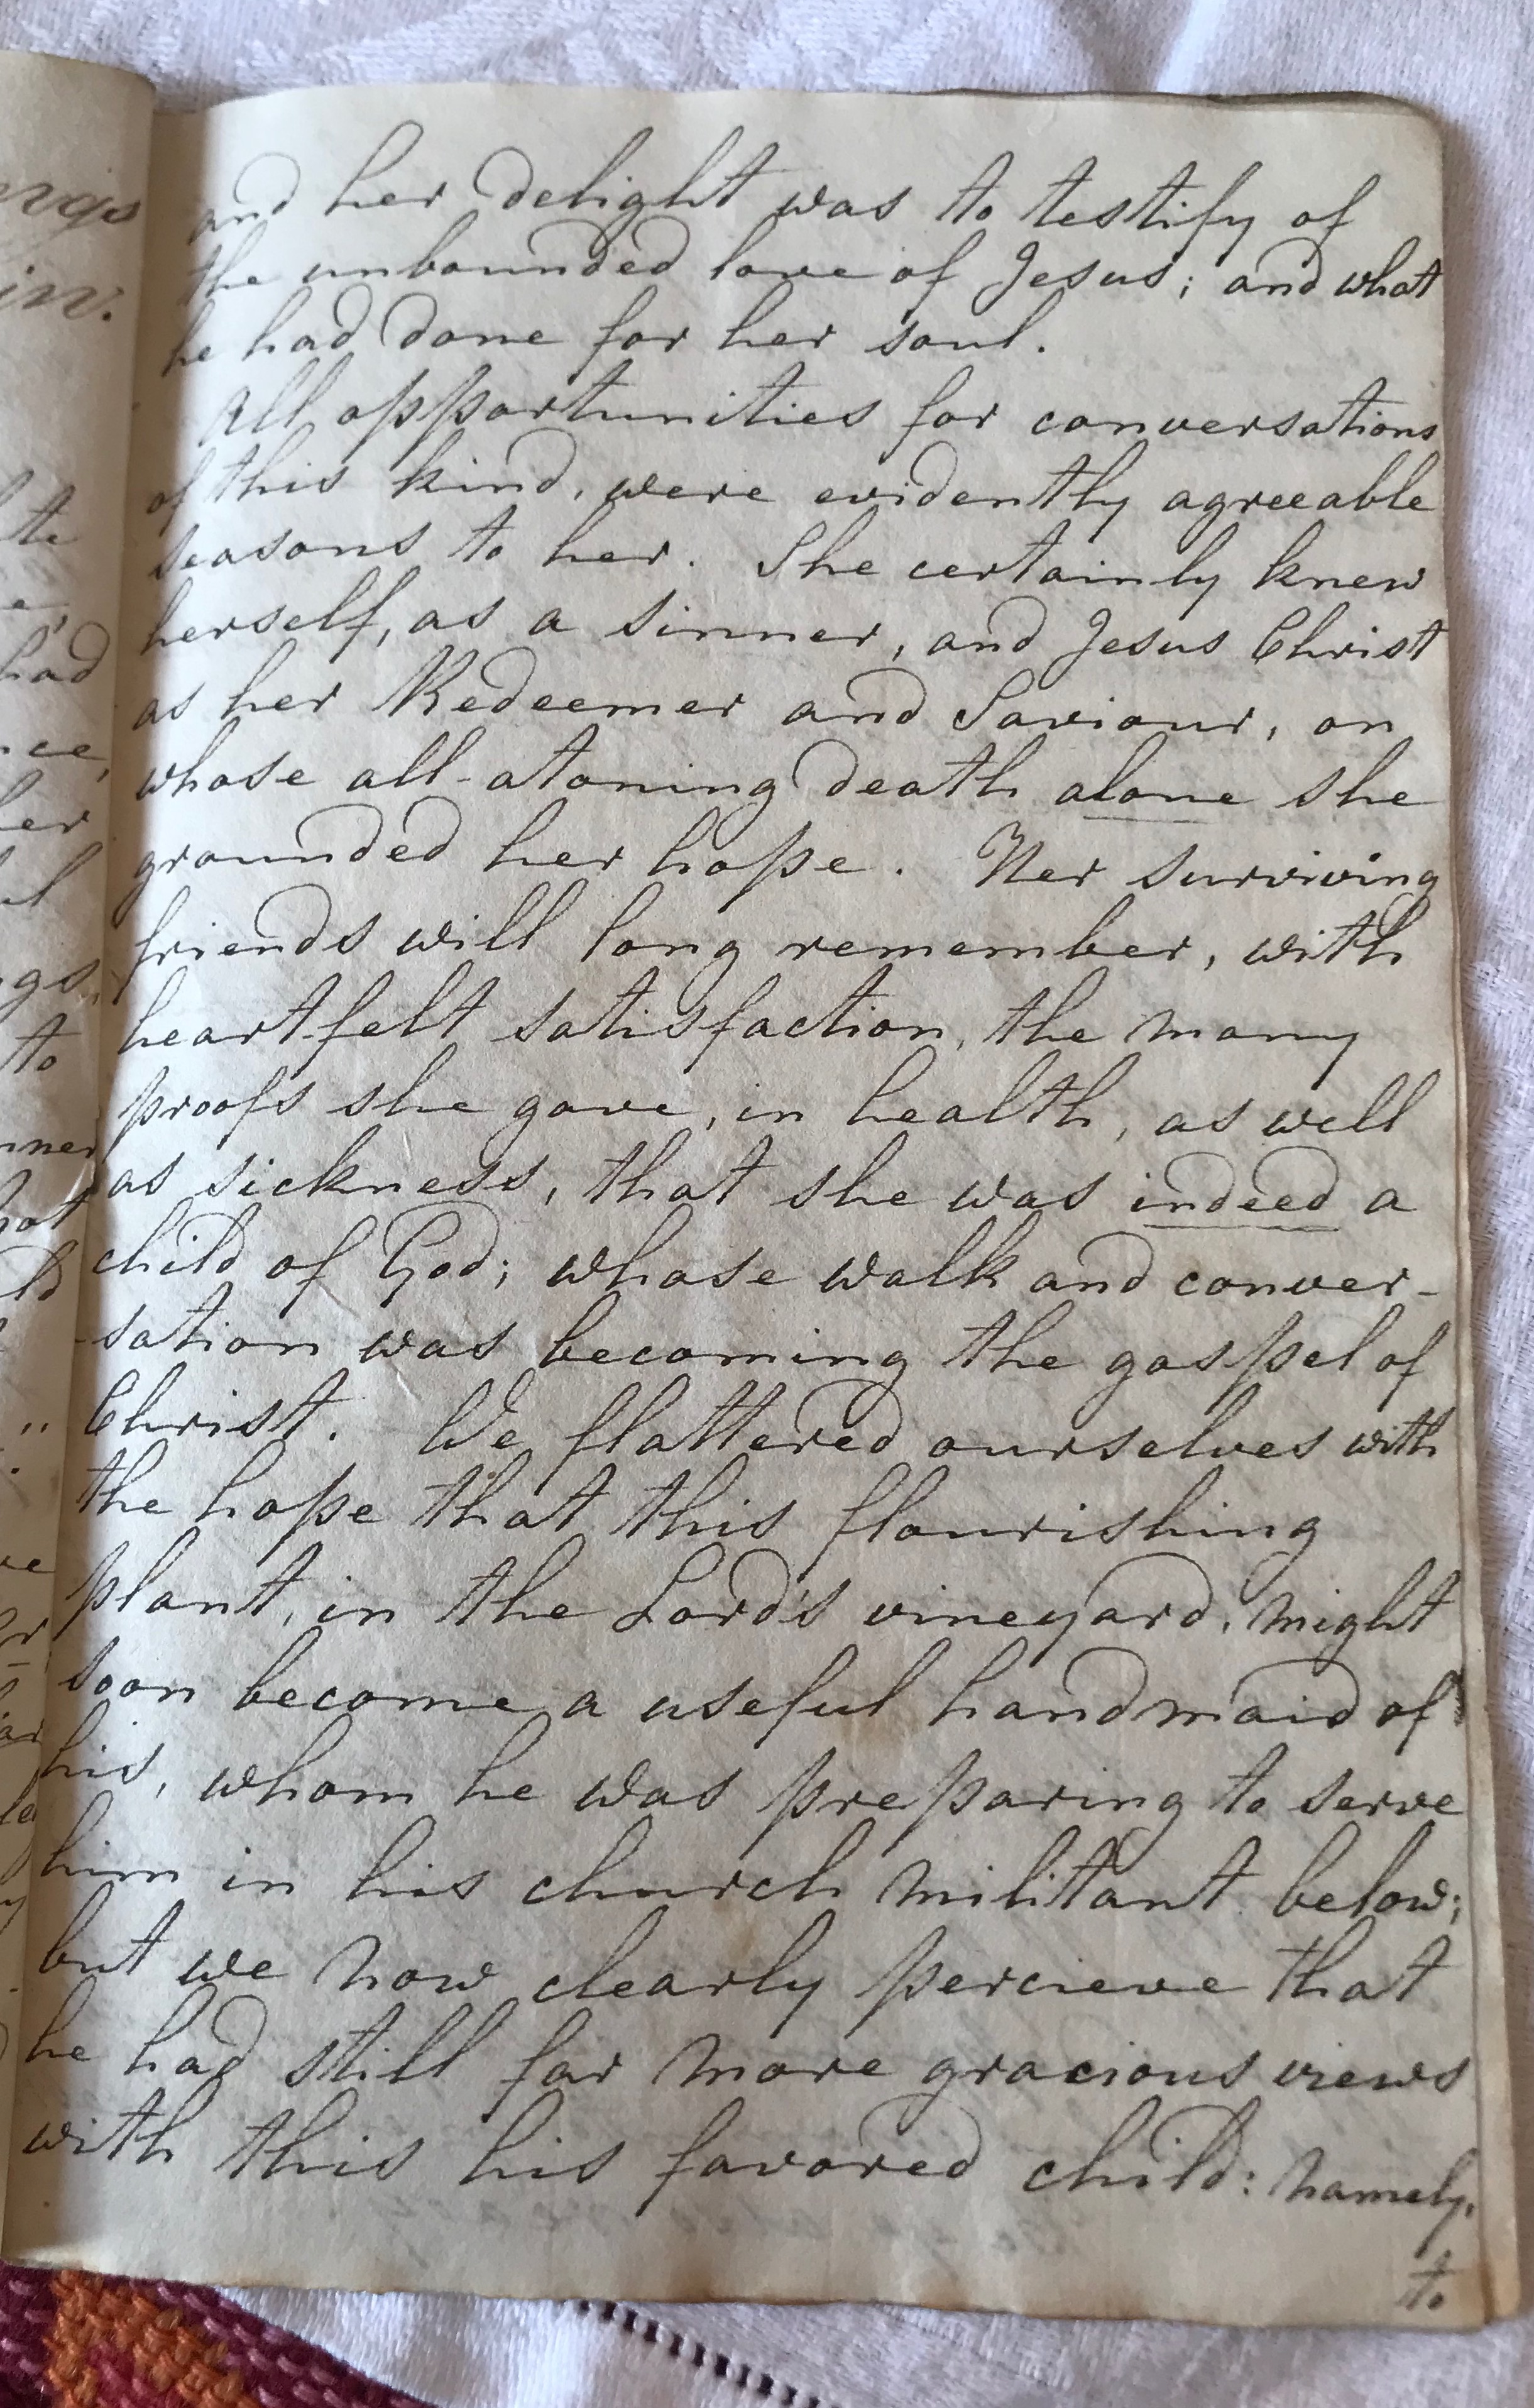 and her delight was to testify of
the unbounded love of Jesus; and what
he had done for her soul.
All opportunities for conversations
of this kind, were evidently agreeable
seasons to her. She certainly knew
herself, as a sinner, and Jesus Christ
as her Redeemer and Saviour, on
whose all-atoning death alone she
grounded her hope. Her surviving
friends will long remember, with
heartfelt satisfaction, the many
proofs she gave, in health, as well
as sickness, that she was indeed a
child of God; whose walk and conver-
-sation was becoming the gospel of
Christ. We flattered ourselves with
the hope that this flourishing
plant, in the Lord's vineyard, might
soon become a useful handmaid of
his, whom he was preparing to serve
him in his church militant below;
but we now clearly percieve that
he had still far more gracious views
with this his favored child: namely,
to